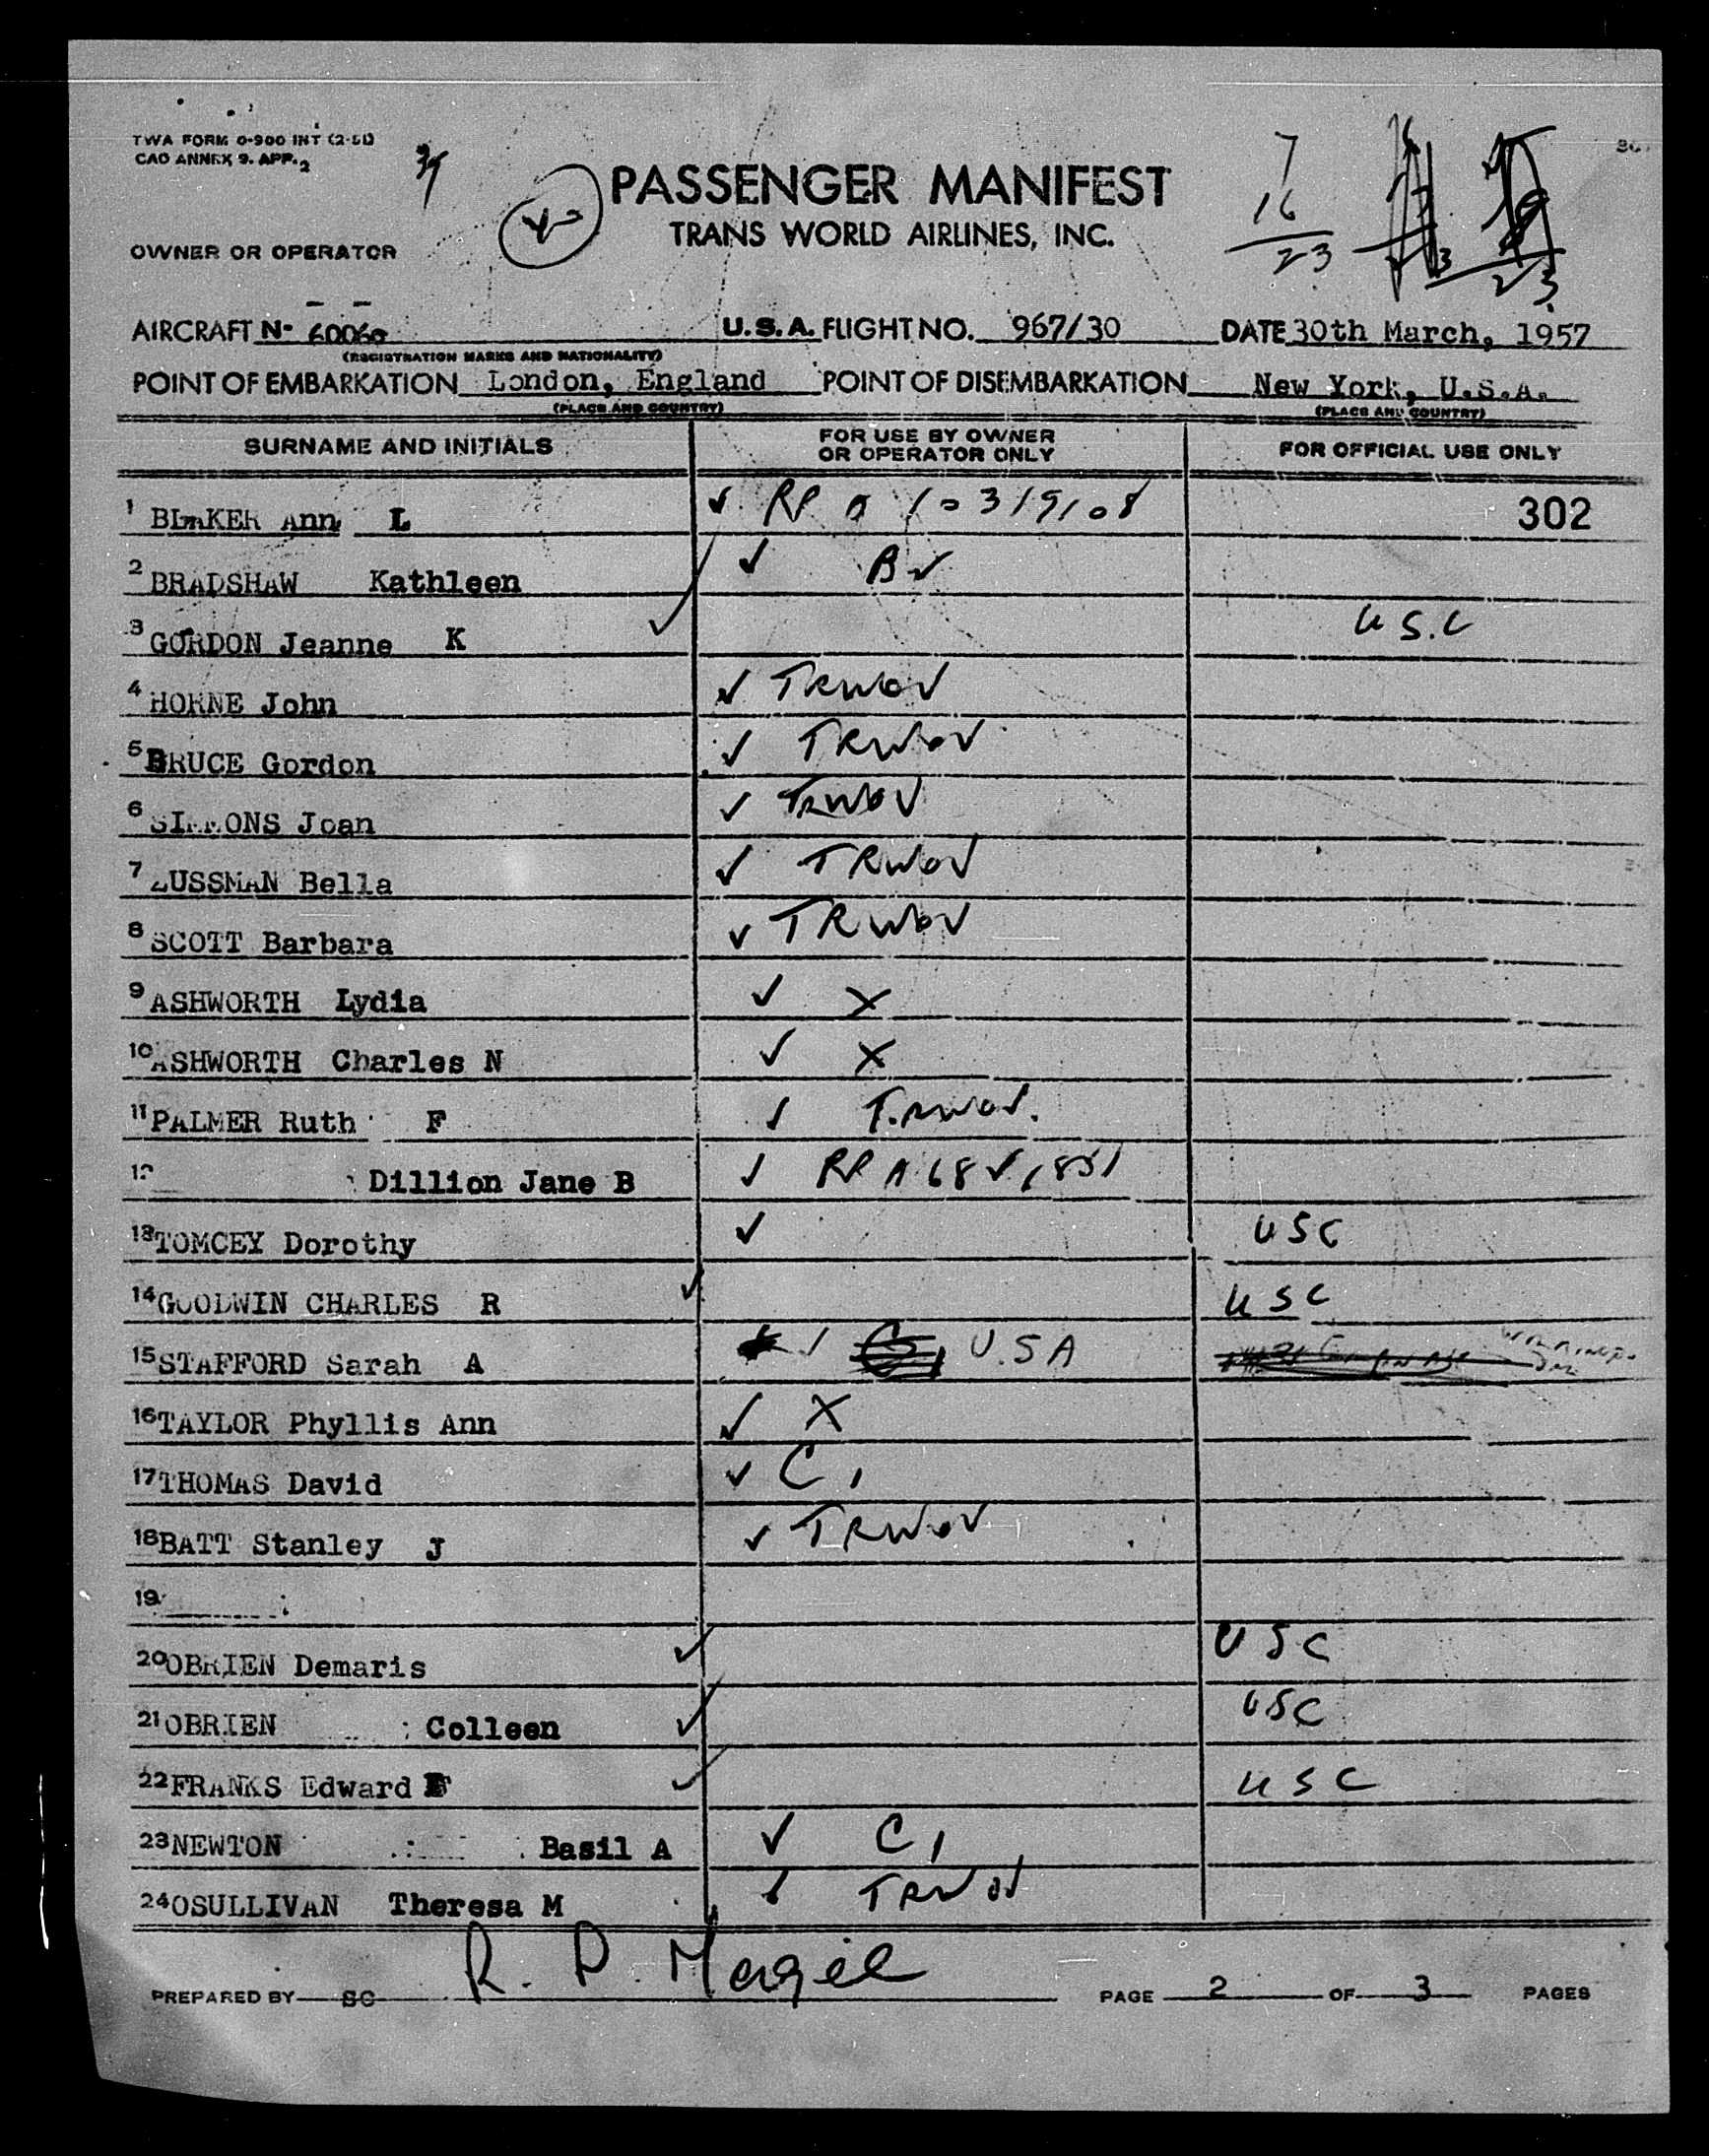 TWA FORM 0-900 INT (2-51)
CAO ANNEX 9. APP. 2
PASSENGER MANIFEST
TRANS WORLD AIRLINES, INC.
7
16
23
23
OWNER OR OPERATOR
AIRCRAFT No 6006c U.S.A. FLIGHT NO. 967/30 DATE 30th March, 1957
(REGISTRATION MARKS AND NATIONALITY)
POINT OF EMBARKATION London, England POINT OF DISEMBARKATION New York, U.S.A.
(PLACE AND COUNTRY) (PLACE AND COUNTRY)
SURNAME AND INITIALS FOR USE BY OWNER OR OPERATOR ONLY FOR OFFICIAL USE ONLY
1 BLAKER Ann L ✓ RP A 10319108 302
2 BRADSHAW Kathleen ✓ B✓
3 GORDON Jeanne K ✓ USC
4 HORNE John ✓ TRWOV
5 BRUCE Gordon ✓ TRWOV
6 SIMMONS Joan ✓ TRWOV
7 ZUSSMAN Bella ✓ TRWOV
8 SCOTT Barbara ✓ TRWOV
9 ASHWORTH Lydia ✓ X
10 ASHWORTH Charles N ✓ X
11 PALMER Ruth F ✓ TRWOV.
12 Dillion Jane B ✓ RP A
13 TOMCEY Dorothy ✓ USC
14 GOODWIN CHARLES R ✓ USC
15 STAFFORD Sarah A ✓ U.S.A
16 TAYLOR Phyllis Ann ✓ X
17 THOMAS David ✓ C1
18 BATT Stanley J ✓ TRWOV
19
20 OBRIEN Demaris ✓ USC
21 OBRIEN Colleen ✓ USC
22 FRANKS Edward F ✓ USC
23 NEWTON Basil A ✓ C1
24 OSULLIVAN Theresa M ✓ TRWOV
R. P. Magee
PREPARED BY SC PAGE 2 OF 3 PAGES